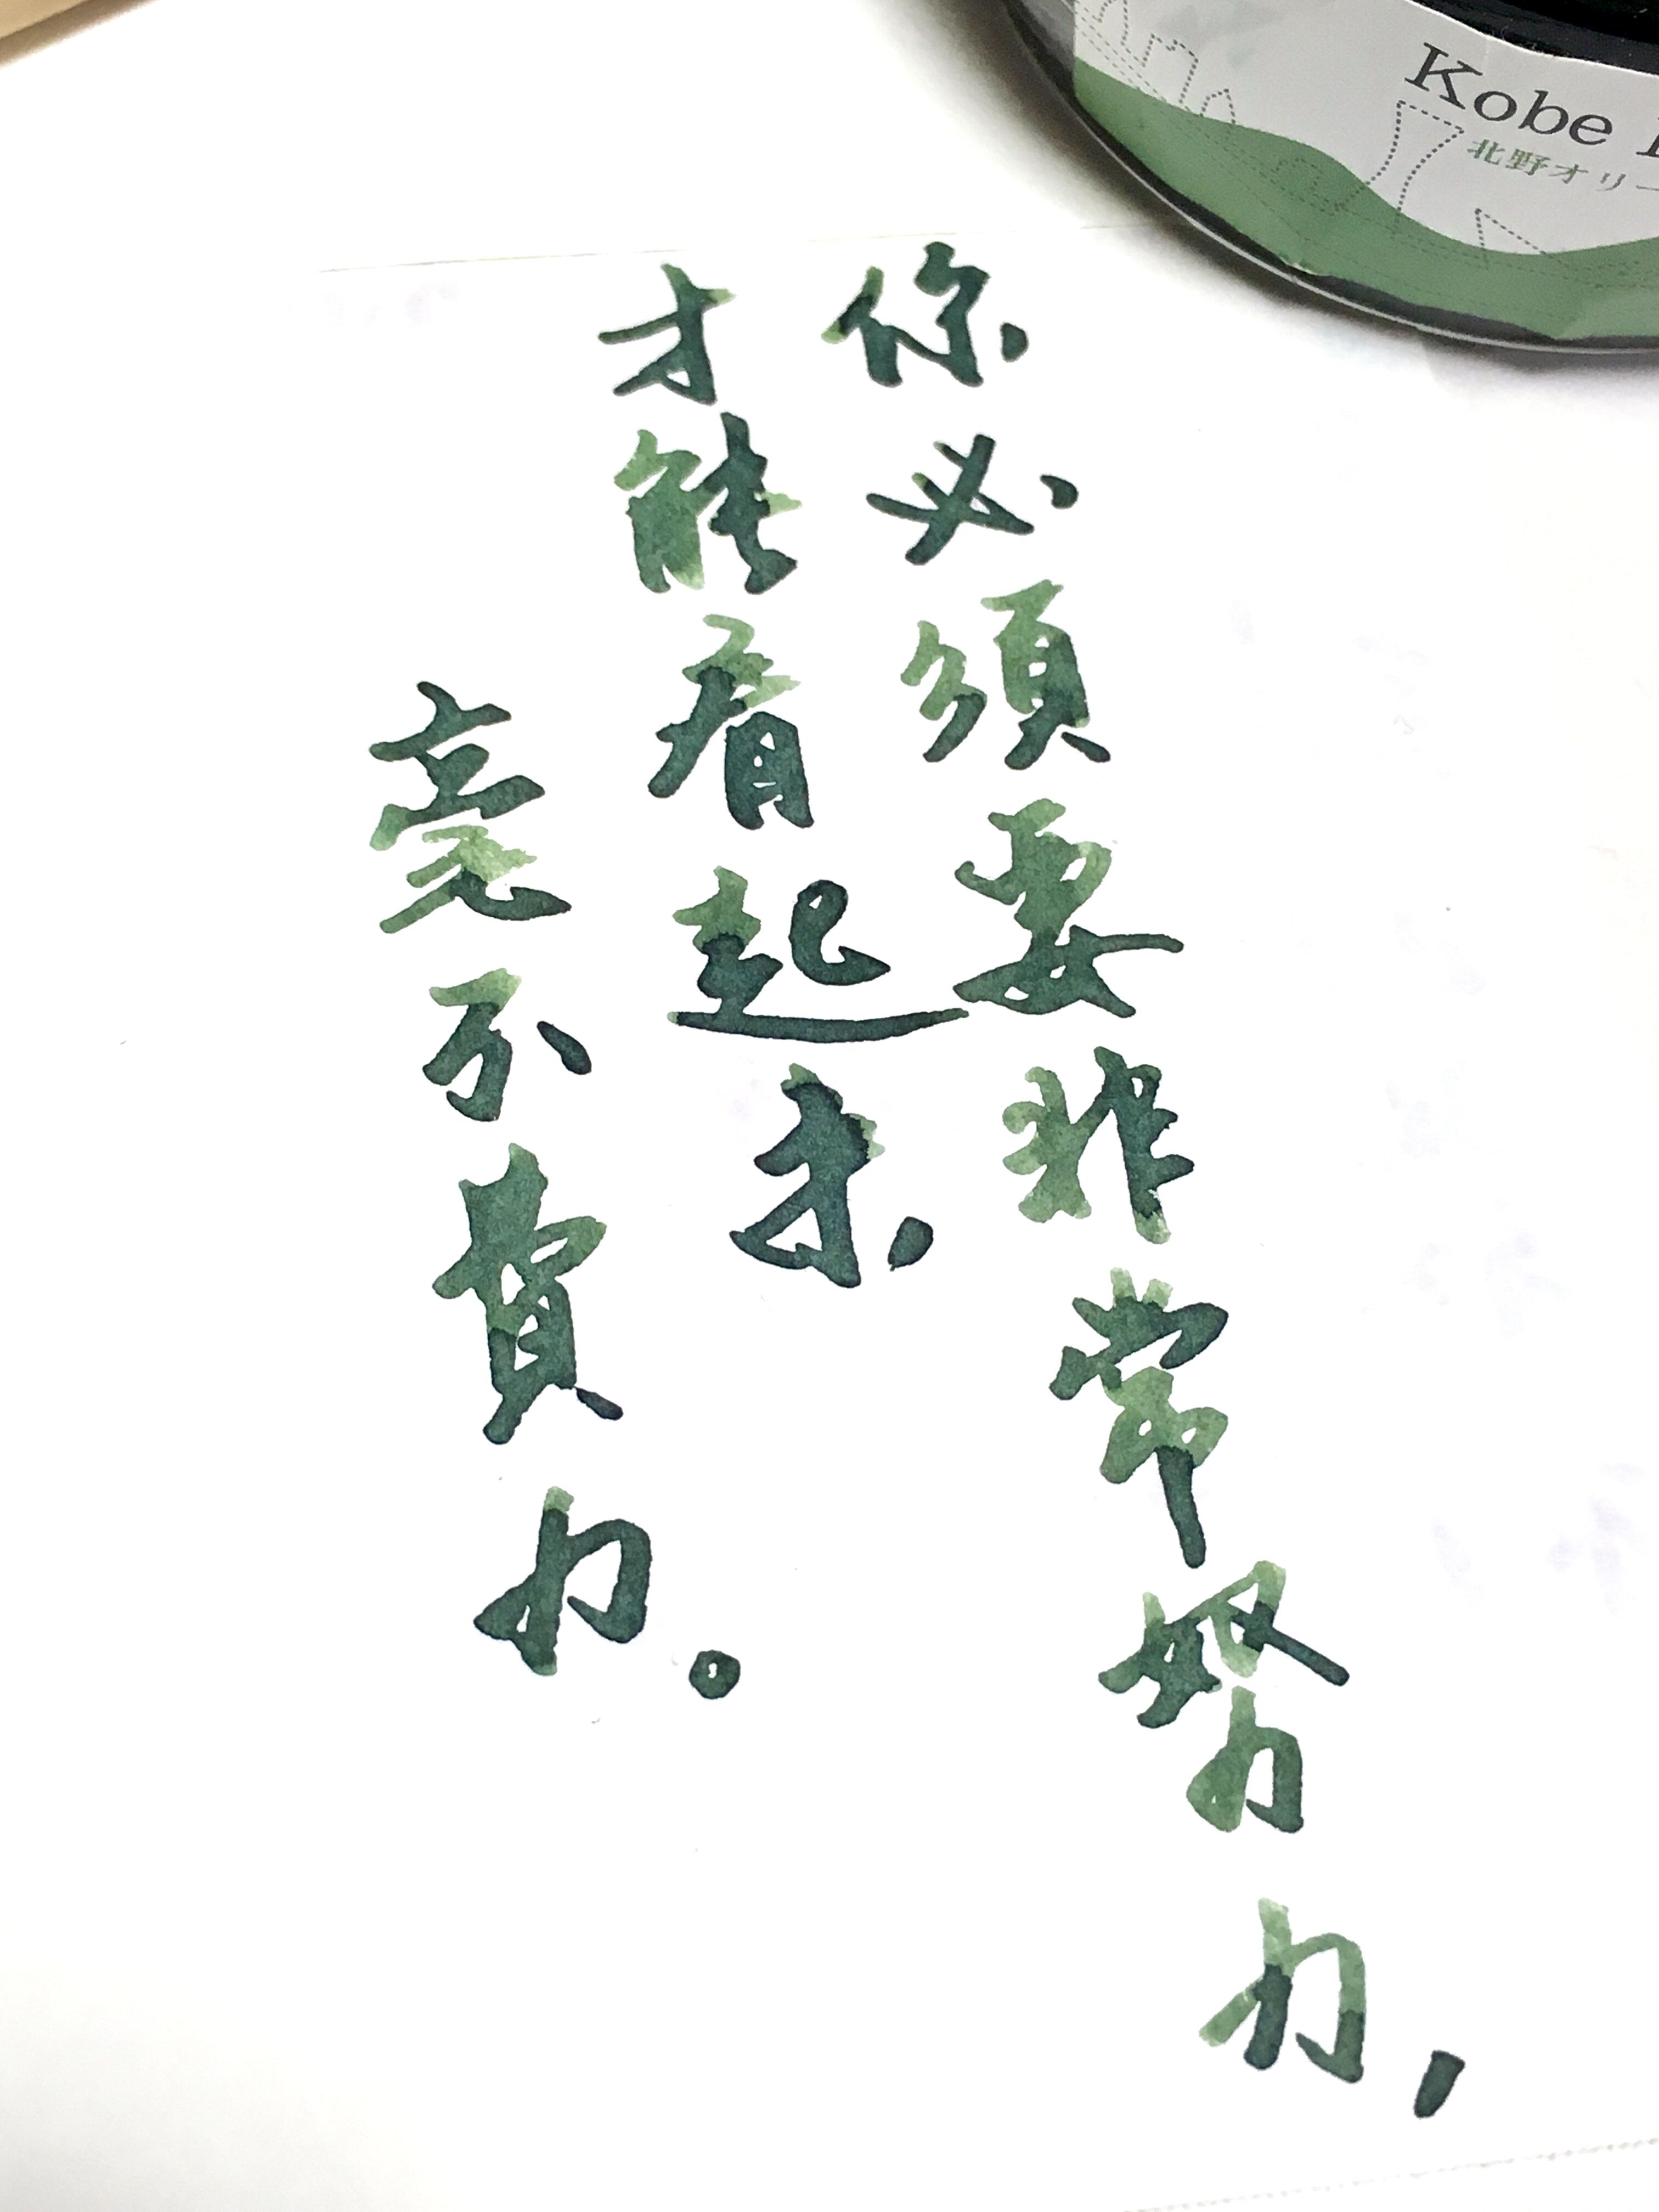 Kobe
北野オリー
你必須要非常努力，
才能看起来，
毫不費力。